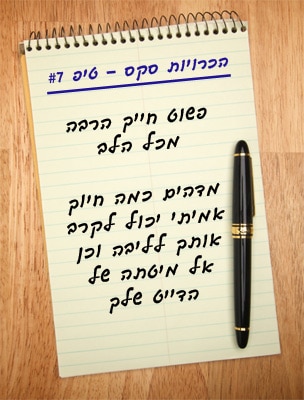 הכרויות סקס - טיפ 7#
פשוט חייך הרבה
מכל הלב
מדהים כמה חיוך
אמיתי יכול לקרב
אותך לליבה וכן
אל מיטתה של
הדייט שלך